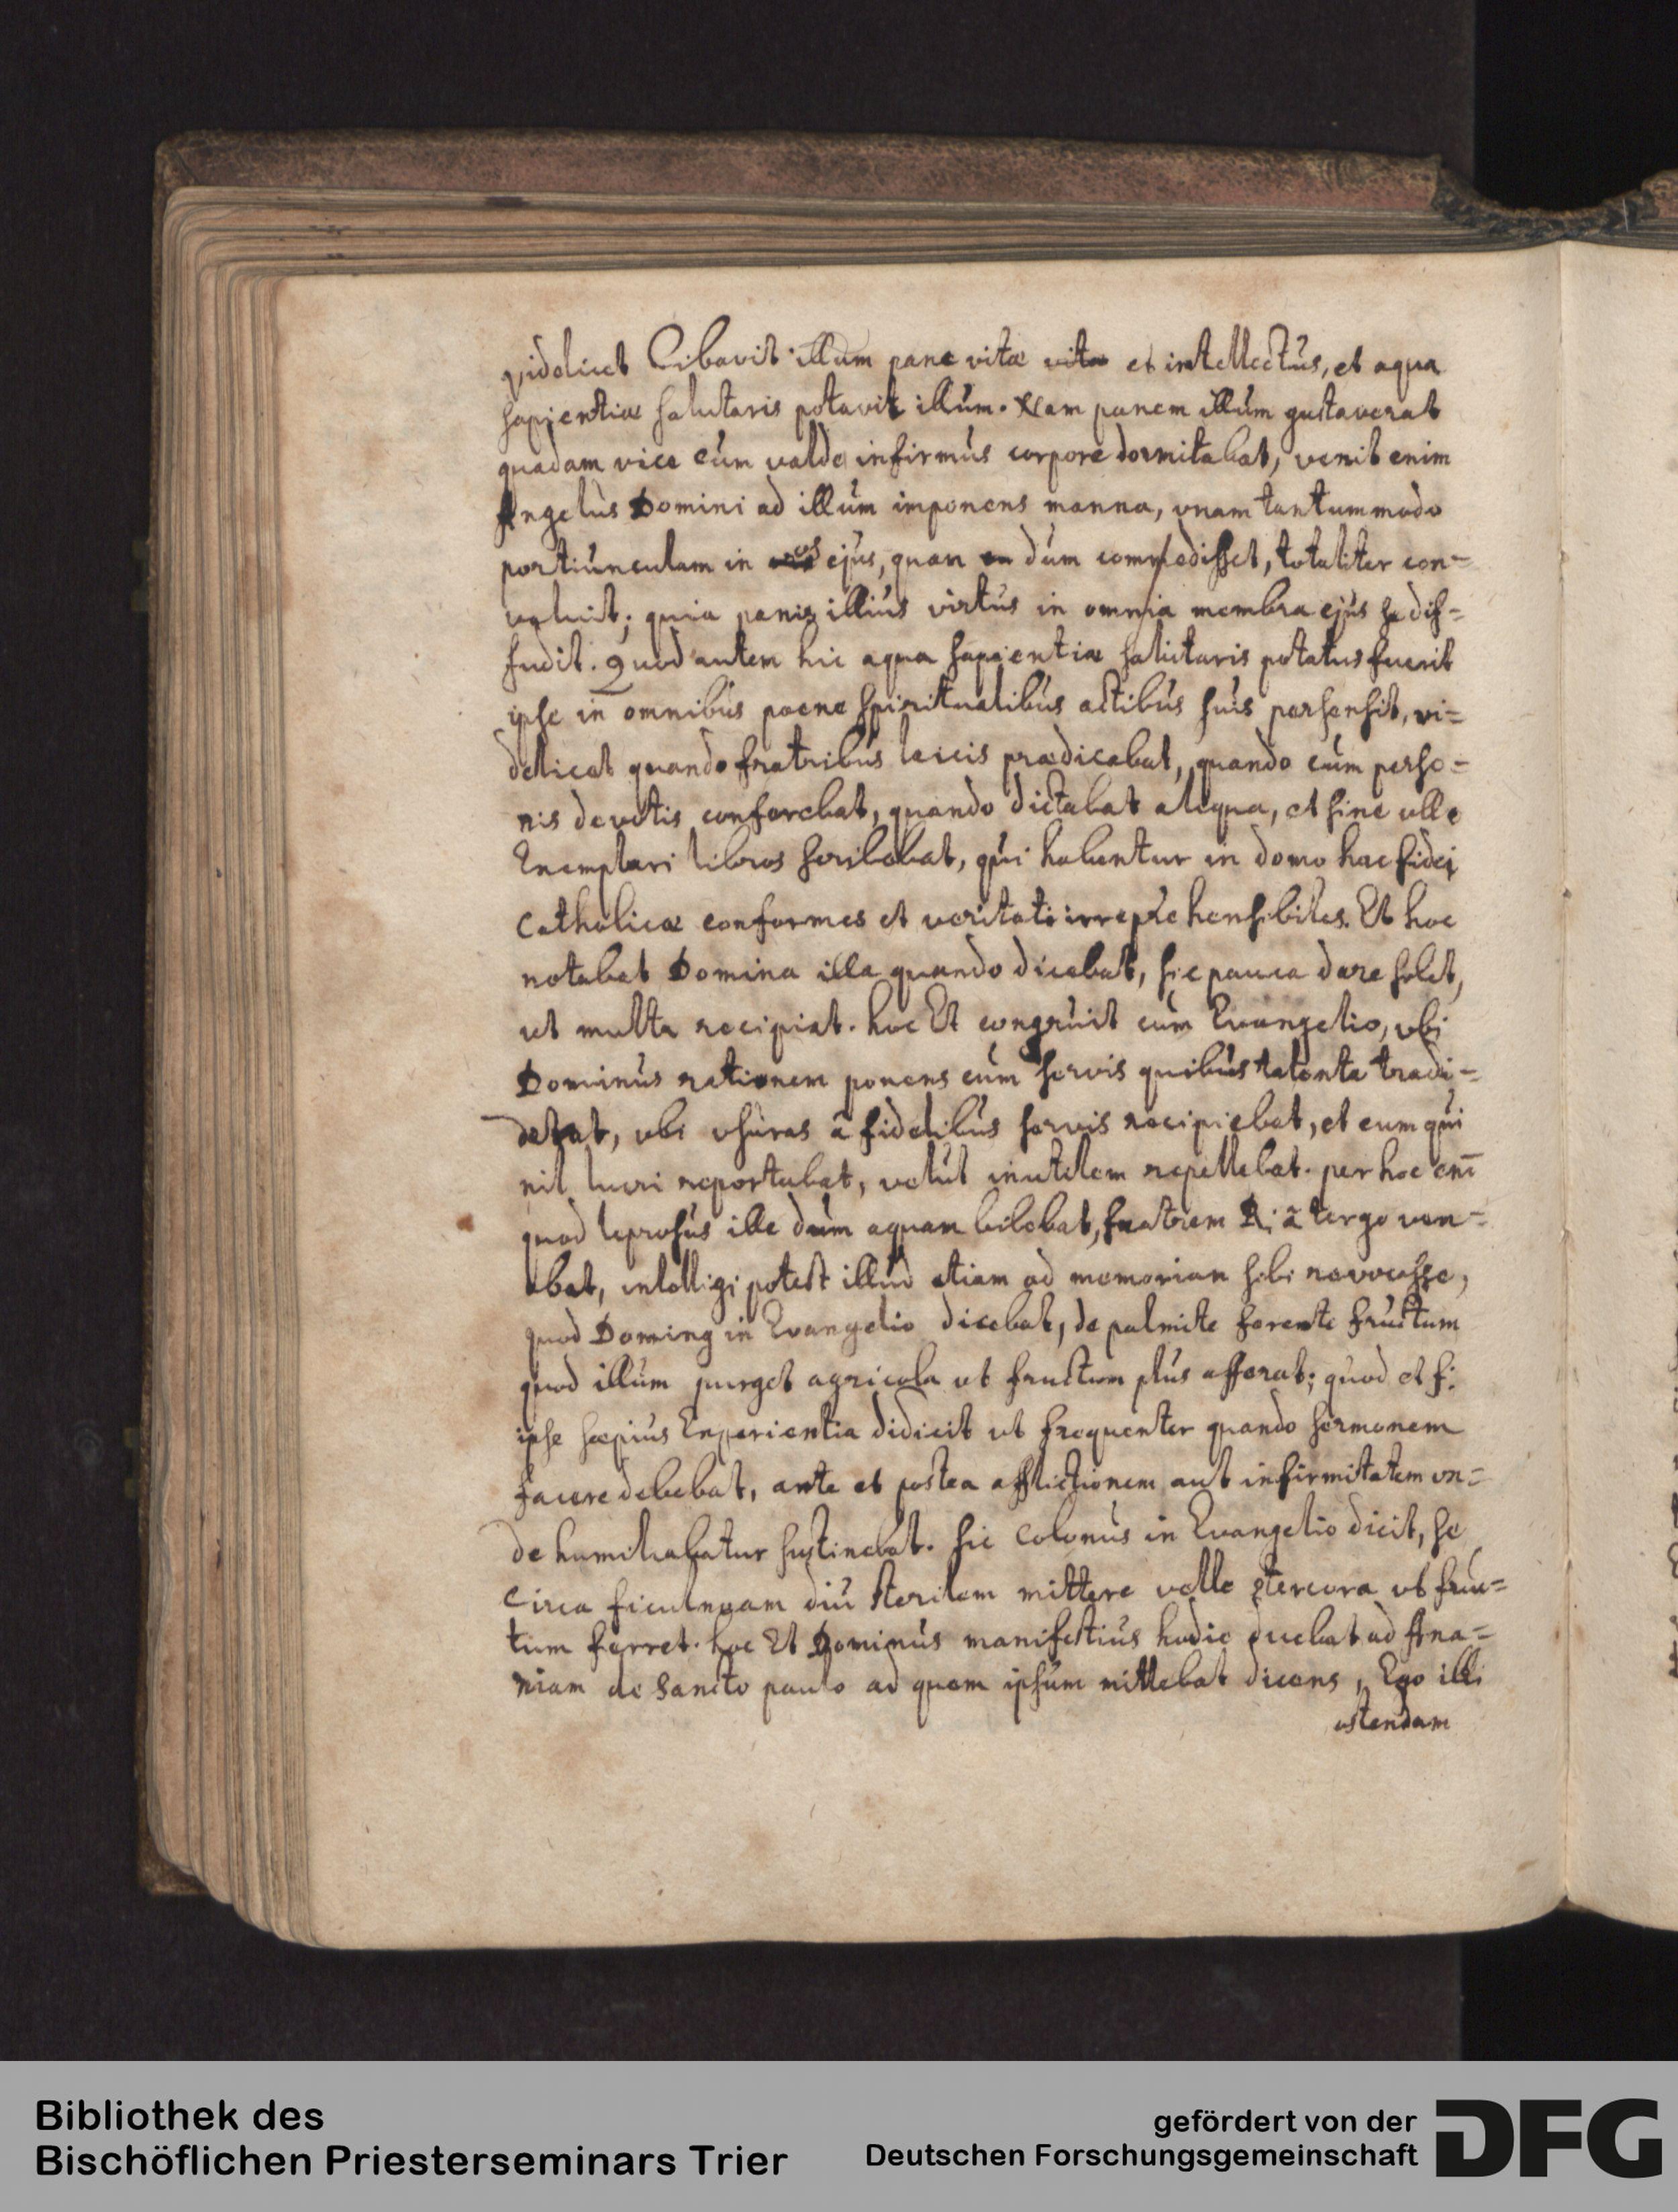 videlicet Cibavit illum pane vitæ vitæ et intellectus, et aqua
sapientiæ salutaris potavit illum. Nam panem illum gustaverat
quadam vice cùm valde infirmus corpore dormitabat, venit enim
Angelus Domini ad illum imponens manna, vnam tantummodo
portiunculam in os ejus, quam dum comedisset, totaliter con=
valuit; quia panis illius virtus in omnia membra ejus se dif=
fudit. Quod autem hic aqua sapientiæ salutaris potatus fuerit
ipse in omnibus poene spiritualibus actibus suis persensit, vi=
delicet quando fratribus laicis prædicabat, quando cum perso=
nis devotis conferebat, quando dictabat aliqua, et sine ullo
Exemplari libros scribebat, qui habentur in domo hac fidei
Catholicæ conformes et veritati irreprehensibiles. Et hoc
notabat Domina illa quando dicebat, sic pauca dare solet,
ut multa recipiat. hoc Et congruit cum Evangelio, vbi
Dominus rationem ponens cum servis quibus talenta tradi=
derat, vbi vsuras à fidelibus servis recipiebat, et eum qui
nil lucri reportabat, velut inutilem repellebat. per hoc enī
quod leprosus ille dum aquam bibebat, fratrem R: à tergo ven=
ebat, intelligi potest illud etiam ad memoriam sibi revocasse,
quod Dominq in Evangelio dicebat, de palmite ferente fructum
quod illum purget agricola ut fructum plus afferat; quod et fr:
ipse sæpius Experientia didicit ut frequenter quando sermonem
facere debebat, ante et postea afflictionem aut infirmitatem vn=
de humiliabatur sustinebat. sic Colonus in Evangelio dicit, se
Circa ficulneam diu sterilem mittere velle stercora ut fruc=
tum ferret. hoc Et Dominus manifestius hodie ducebat ad Ana=
niam de Sancto paulo ad quem ipsum mittebat dicens, Ego illi
ostendam
Bibliothek des
Bischöflichen Priesterseminars Trier
gefördert von der
Deutschen Forschungsgemeinschaft
DFG